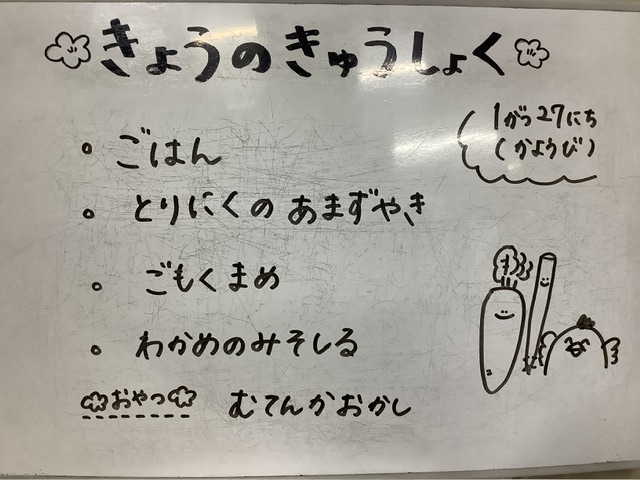 きょうのきゅうしょく
1がつ27にち
(かようび)
・ごはん
・とりにくのあまずやき
・ごもくまめ
・わかめのみそしる
おやつ むてんかおかし